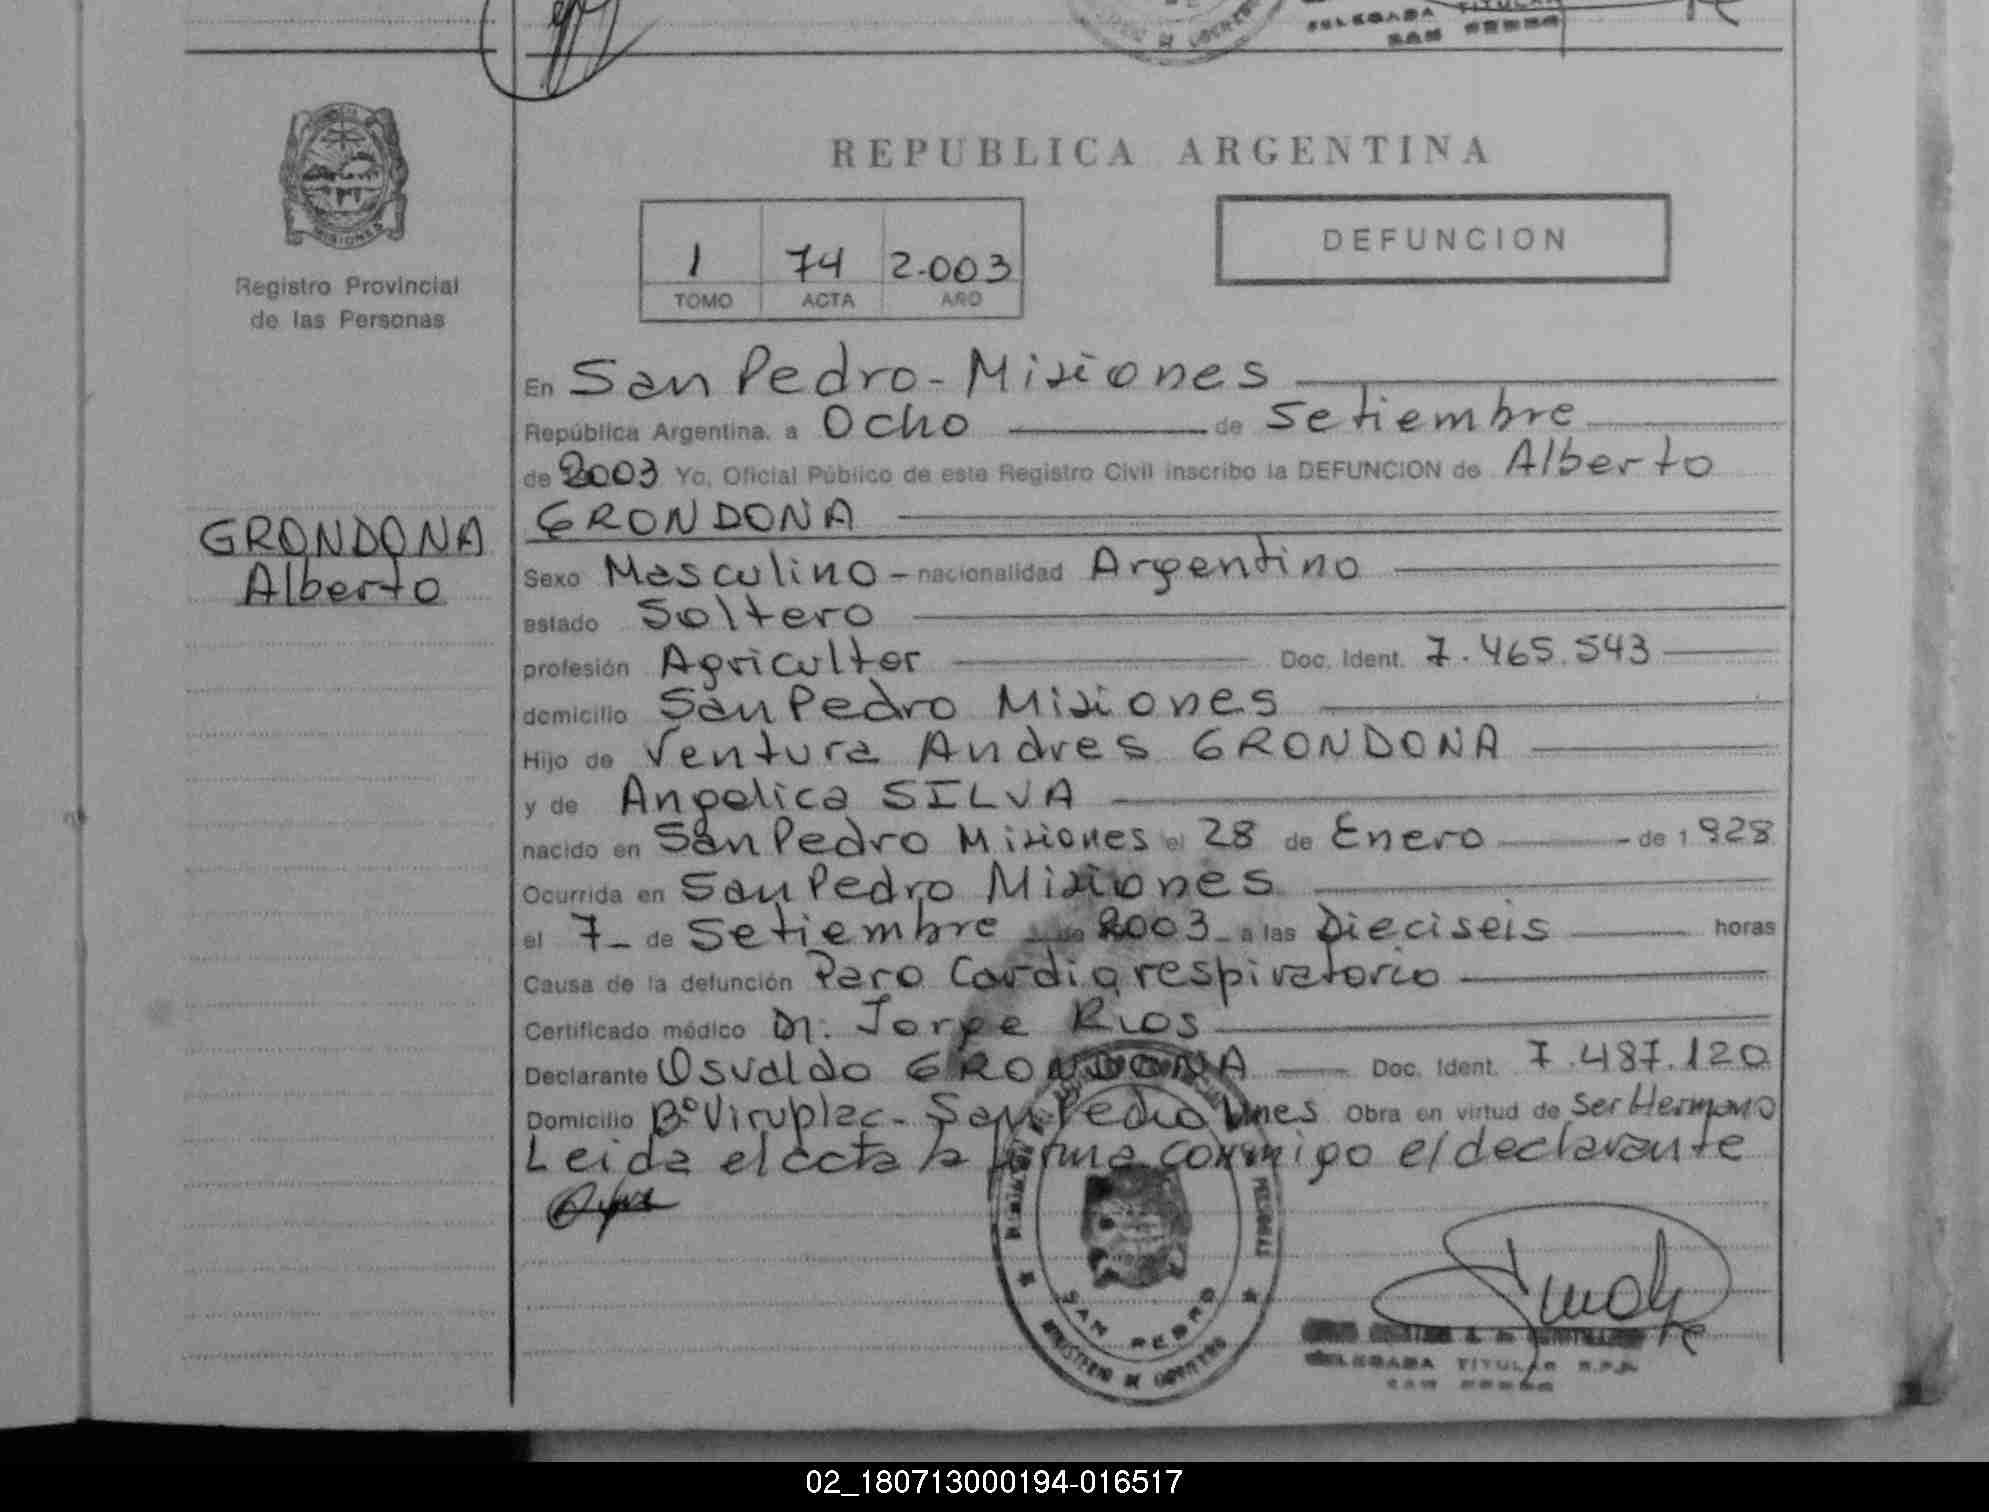 DELEGADA TITULAR
SAN PEDRO
MISIONES
Registro Provincial
de las Personas
REPUBLICA ARGENTINA
1 74 2.003
TOMO ACTA AÑO
DEFUNCION
GRONDONA
Alberto
En San Pedro - Misiones
República Argentina, a Ocho de Setiembre
de 2003 Yo, Oficial Público de este Registro Civil inscribo la DEFUNCION de Alberto
GRONDONA
Sexo Masculino - nacionalidad Argentino
estado Soltero
profesión Agricultor Doc. Ident. 7.465.543
domicilio San Pedro Misiones
Hijo de Ventura Andres GRONDONA
y de Angelica SILVA
nacido en San Pedro Misiones el 28 de Enero de 1.928
Ocurrida en San Pedro Misiones
el 7 - de Setiembre de 2003 - a las Dieciseis horas
Causa de la defunción Paro Cardiorespiratorio
Certificado médico Dr. Jorge Rios
Declarante Osvaldo GRONDONA Doc. Ident. 7.487.120
Domicilio B° Viruplac - San Pedro Mnes Obra en virtud de Ser Hermano
Leida el acta la firma conmigo el declarante
SAN PEDRO
MINISTERIO DE GOBIERNO
DELEGADA TITULAR R.P.P.
SAN PEDRO
02_180713000194-016517